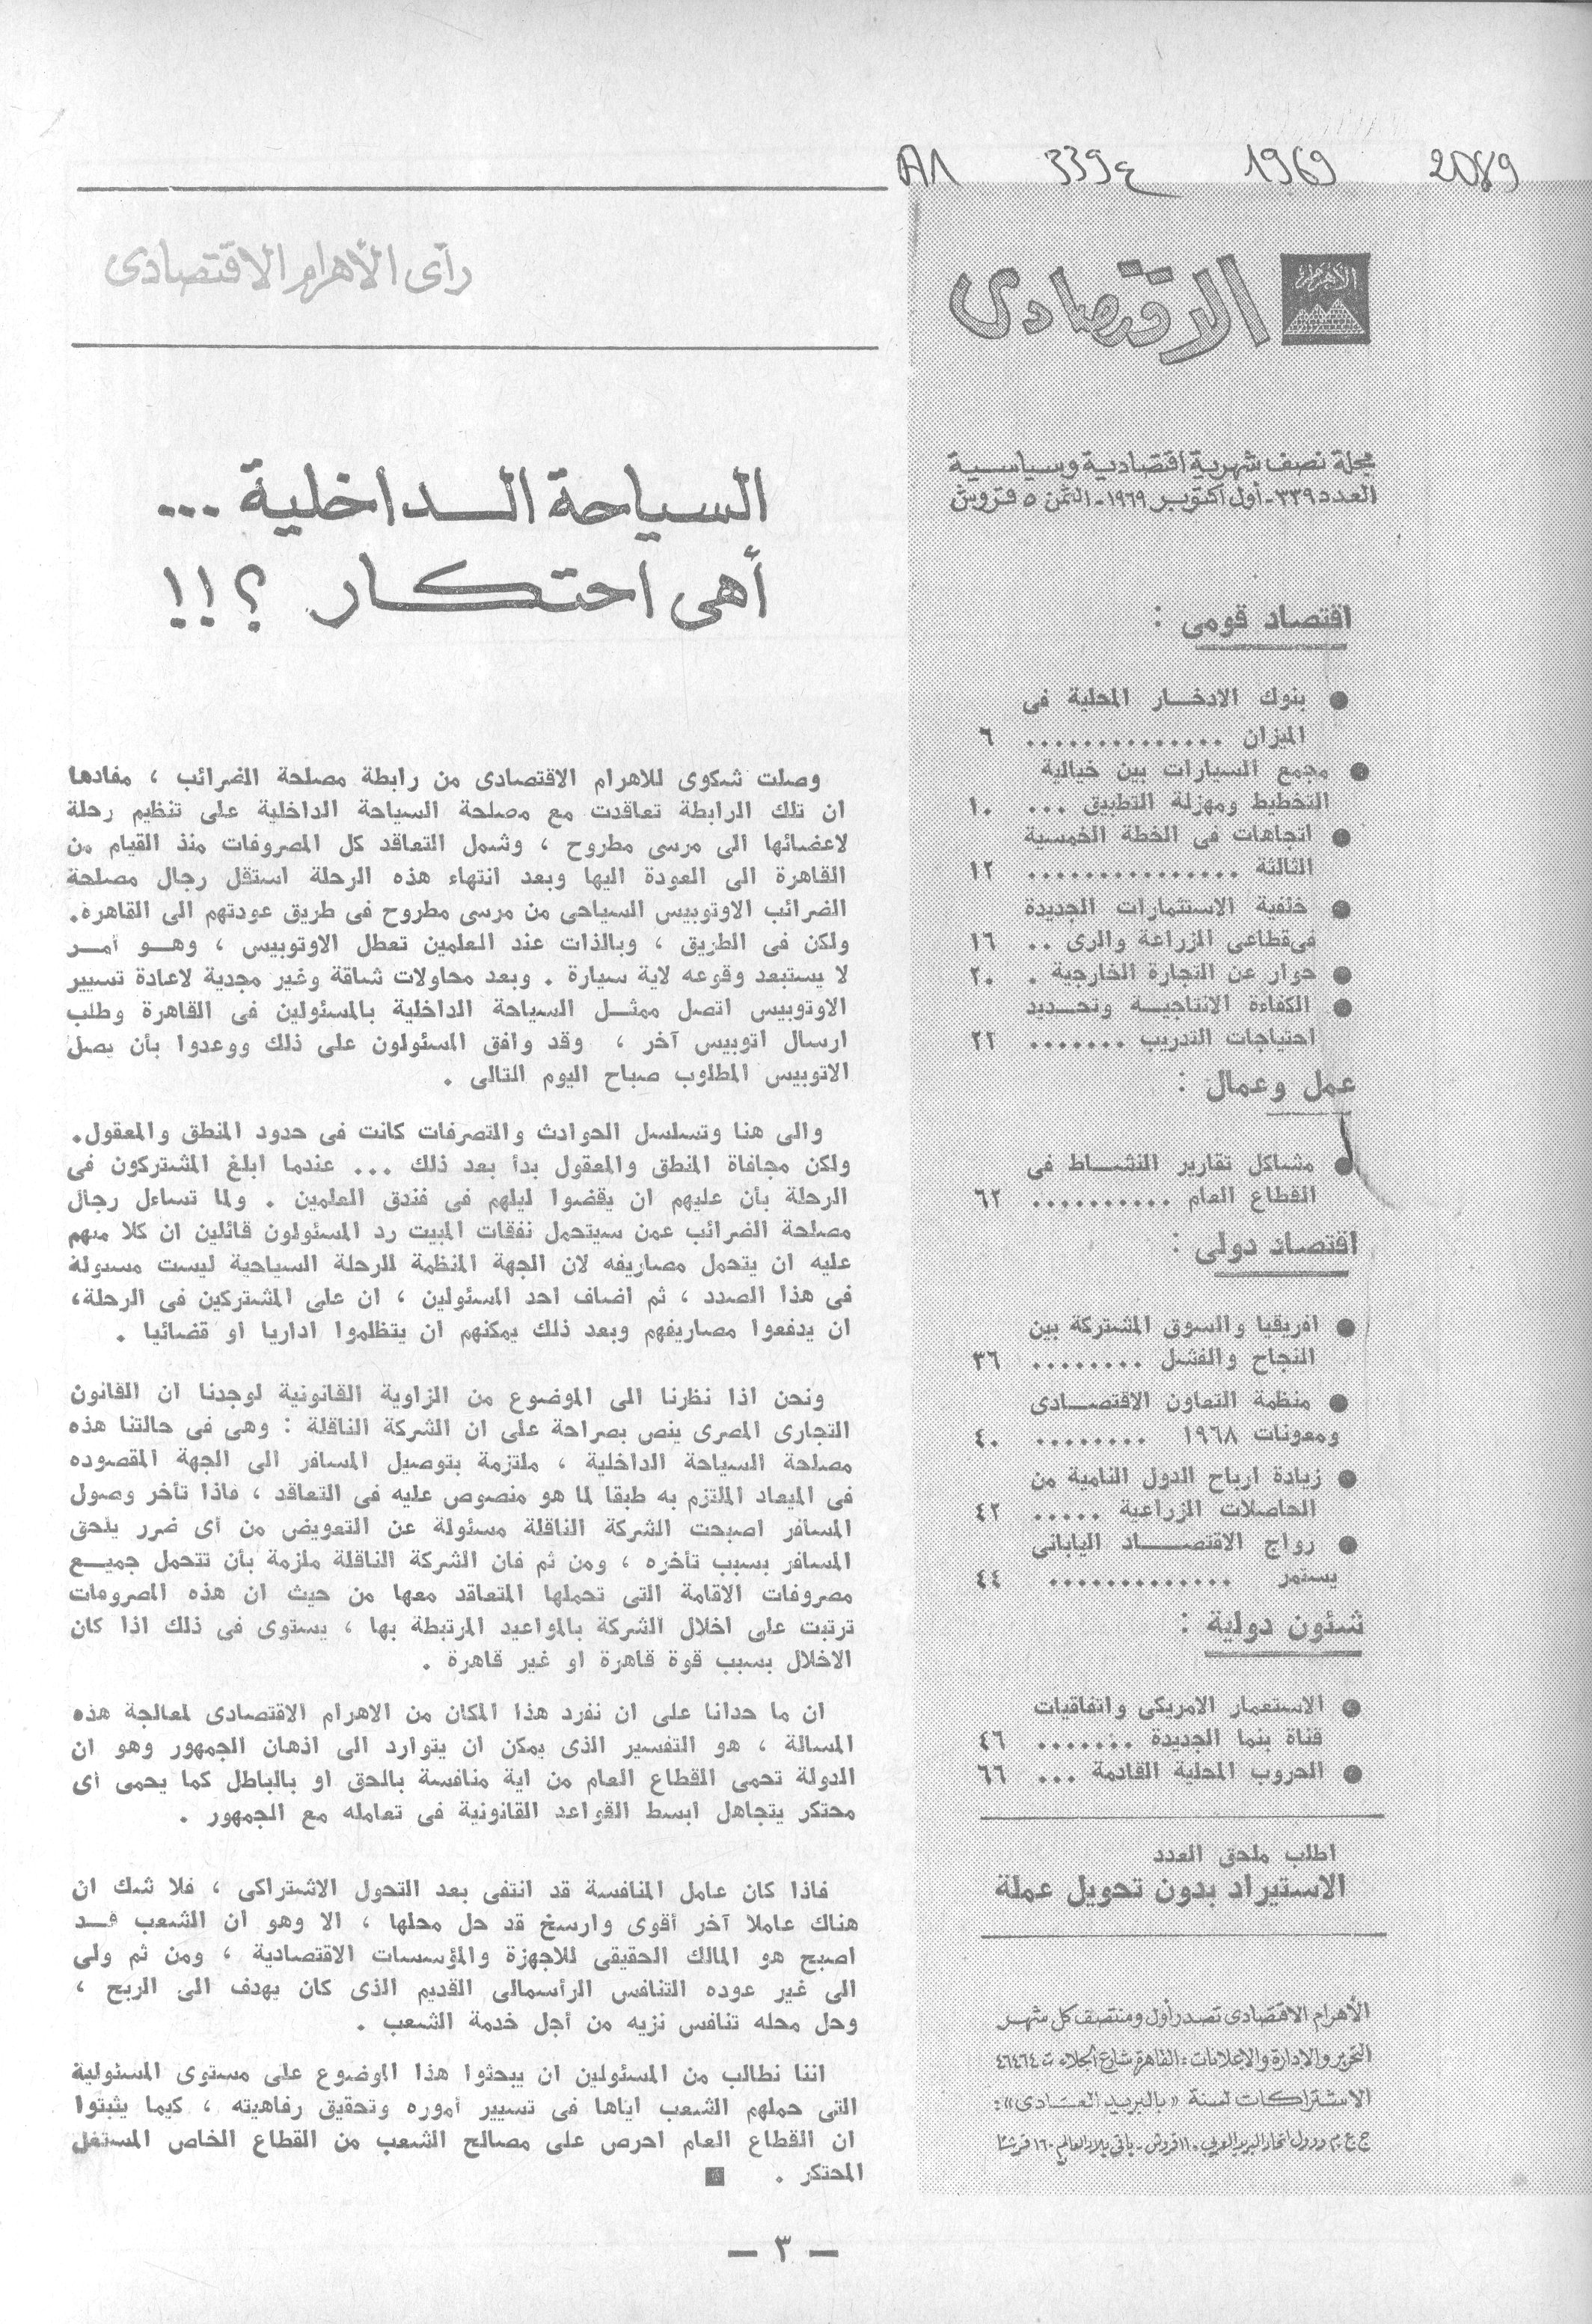 A1 339ع 1969 2089
الأهرام
الاقتصادى
مجلة نصف شهرية اقتصادية وسياسية
العدد ٣٣٩ - أول أكتوبر ١٩٦٩ - الثمن ٥ قروش
اقتصاد قومى :
● بنوك الادخــار المحلية فى
الميزان .............. ٦
● مجمع السيارات بين خيالية
التخطيط ومهزلة التطبيق ... ١٠
● اتجاهات فى الخطة الخمسية
الثالثة ............... ١٢
● خلفية الاستثمارات الجديدة
فى قطاعى الزراعة والرى .. ١٦
● حوار عن التجارة الخارجية . ٢٠
● الكفاءة الانتاجيــة وتحــديد
احتياجات التدريب ....... ٢٢
عمل وعمال :
● مشاكل تقارير النشــاط فى
القطاع العام .......... ٦٢
اقتصاد دولى :
● افريقيا والسوق المشتركة بين
النجاح والفشل ........ ٣٦
● منظمة التعاون الاقتصــادى
ومعونات ١٩٦٨ ........ ٤٠
● زيادة ارباح الدول النامية من
الحاصلات الزراعية ..... ٤٢
● رواج الاقتصــــاد اليابانى
يستمر ............. ٤٤
شئون دولية :
● الاستعمار الامريكى واتفاقيات
قناة بنما الجديدة ....... ٤٦
● الحروب المحلية القادمة ... ٦٦
اطلب ملحق العدد
الاستيراد بدون تحويل عملة
الأهرام الاقتصادى تصدر أول ومنتصف كل شهر
التحرير والإدارة والإعلانات : القاهرة شارع الجلاء ت ٤٦٤٦٤
الاشتراكات لسنة « بالبريد العــادى » :
ج.ع.م ودول اتحاد البريد العربى ١١٠ قروش - باقى بلاد العالم ١٦٠ قرشا
رأى الأهرام الاقتصادى
السياحة الــداخلية ...
أهى احتـكــار ؟!!
وصلت شكوى للاهرام الاقتصادى من رابطة مصلحة الضرائب ، مفادها
ان تلك الرابطة تعاقدت مع مصلحة السياحة الداخلية على تنظيم رحلة
لاعضائها الى مرسى مطروح ، وشمل التعاقد كل المصروفات منذ القيام من
القاهرة الى العودة اليها وبعد انتهاء هذه الرحلة استقل رجال مصلحة
الضرائب الاوتوبيس السياحى من مرسى مطروح فى طريق عودتهم الى القاهرة.
ولكن فى الطريق ، وبالذات عند العلمين تعطل الاوتوبيس ، وهــو أمــر
لا يستبعد وقوعه لاية سيارة . وبعد محاولات شاقة وغير مجدية لاعادة تسيير
الاوتوبيس اتصل ممثــل السياحة الداخلية بالمسئولين فى القاهرة وطلب
ارسال اتوبيس آخر ، وقد وافق المسئولون على ذلك ووعدوا بأن يصل
الاتوبيس المطلوب صباح اليوم التالى .
والى هنا وتسلسل الحوادث والتصرفات كانت فى حدود المنطق والمعقول.
ولكن مجافاة المنطق والمعقول بدأ بعد ذلك ... عندما ابلغ المشتركون فى
الرحلة بأن عليهم ان يقضوا ليلهم فى فندق العلمين . ولما تساءل رجال
مصلحة الضرائب عمن سيتحمل نفقات المبيت رد المسئولون قائلين ان كلا منهم
عليه ان يتحمل مصاريفه لان الجهة المنظمة للرحلة السياحية ليست مسئولة
فى هذا الصدد ، ثم اضاف احد المسئولين ، ان على المشتركين فى الرحلة،
ان يدفعوا مصاريفهم وبعد ذلك يمكنهم ان يتظلموا اداريا او قضائيا .
ونحن اذا نظرنا الى الموضوع من الزاوية القانونية لوجدنا ان القانون
التجارى المصرى ينص بصراحة على ان الشركة الناقلة : وهى فى حالتنا هذه
مصلحة السياحة الداخلية ، ملتزمة بتوصيل المسافر الى الجهة المقصوده
فى الميعاد الملتزم به طبقا لما هو منصوص عليه فى التعاقد ، فاذا تأخر وصول
المسافر اصبحت الشركة الناقلة مسئولة عن التعويض من أى ضرر يلحق
المسافر بسبب تأخره ، ومن ثم فان الشركة الناقلة ملزمة بأن تتحمل جميــع
مصروفات الاقامة التى تحملها المتعاقد معها من حيث ان هذه المصروفات
ترتبت على اخلال الشركة بالمواعيد المرتبطة بها ، يستوى فى ذلك اذا كان
الاخلال بسبب قوة قاهرة او غير قاهرة .
ان ما حدانا على ان نفرد هذا المكان من الاهرام الاقتصادى لمعالجة هذه
المسالة ، هو التفسير الذى يمكن ان يتوارد الى اذهان الجمهور وهو ان
الدولة تحمى القطاع العام من اية منافسة بالحق او بالباطل كما يحمى أى
محتكر يتجاهل ابسط القواعد القانونية فى تعامله مع الجمهور .
فاذا كان عامل المنافسة قد انتفى بعد التحول الاشتراكى ، فلا شك ان
هناك عاملا آخر أقوى وارسخ قد حل محلها ، الا وهو ان الشعب قــد
اصبح هو المالك الحقيقى للاجهزة والمؤسسات الاقتصادية ، ومن ثم ولى
الى غير عوده التنافس الرأسمالى القديم الذى كان يهدف الى الربح ،
وحل محله تنافس نزيه من أجل خدمة الشعب .
اننا نطالب من المسئولين ان يبحثوا هذا الموضوع على مستوى المسئولية
التى حملهم الشعب اياها فى تسيير أموره وتحقيق رفاهيته ، كيما يثبتوا
ان القطاع العام احرص على مصالح الشعب من القطاع الخاص المستغل
المحتكر .
— ٣ —